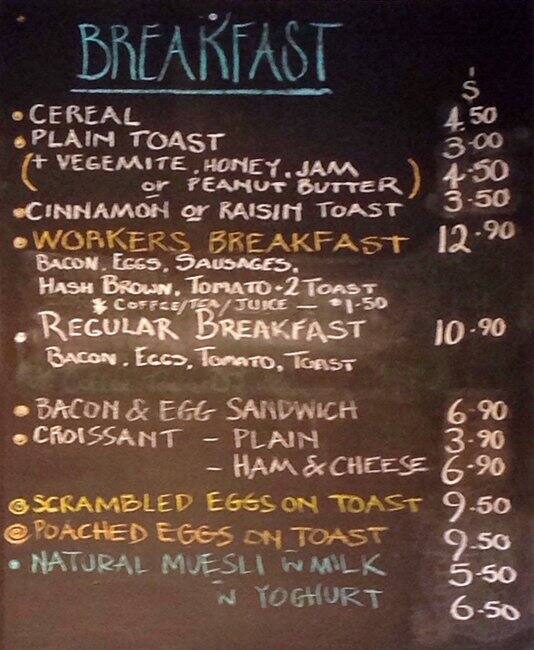 BREAKFAST
$
CEREAL 4.50
PLAIN TOAST 3.00
(+ VEGEMITE, HONEY, JAM 4.50
or PEANUT BUTTER)
CINNAMON or RAISIN TOAST 3.50
WORKERS BREAKFAST 12.90
BACON, EGGS, SAUSAGES,
HASH BROWN, TOMATO + 2 TOAST
* COFFEE/TEA/JUICE — $1.50
REGULAR BREAKFAST 10.90
BACON, EGGS, TOMATO, TOAST
BACON & EGG SANDWICH 6.90
CROISSANT - PLAIN 3.90
- HAM & CHEESE 6.90
SCRAMBLED EGGS ON TOAST 9.50
POACHED EGGS ON TOAST 9.50
NATURAL MUESLI 'N MILK 5.50
'N YOGHURT 6.50